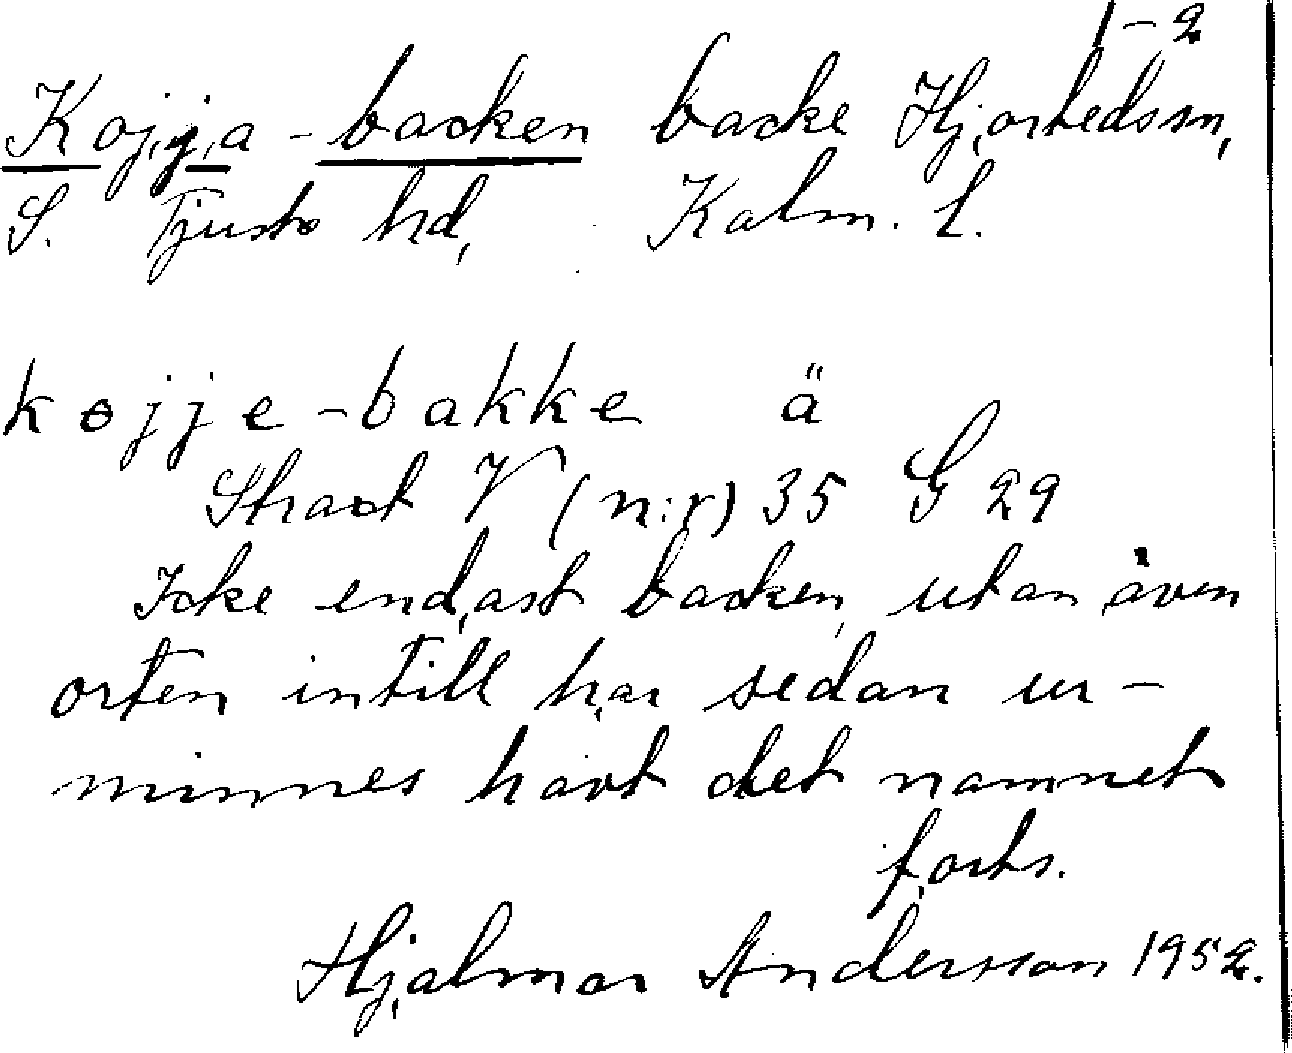 1-2
Kojja-backen backe Hjortedssn,
S. Tjusts hd, Kalm. l.
kojje-bakke ä
Stract V (n:r) 35 G 29
Icke endast backen, utan även
orten intill har sedan ur-
minnes havt det namnet
forts.
Hjalmar Andersson 1952.